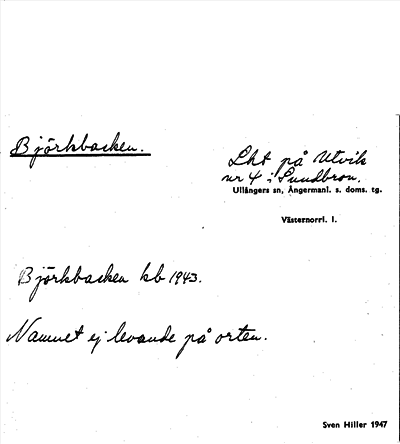 Björkbacken.
Lht på Utvik
nr 4 i Sundbron.
Ullångers sn, Ångermanl. s. doms. tg.
Västernorrl. l.
Björkbacken kb 1943.
Namnet ej levande på orten.
Sven Hiller 1947